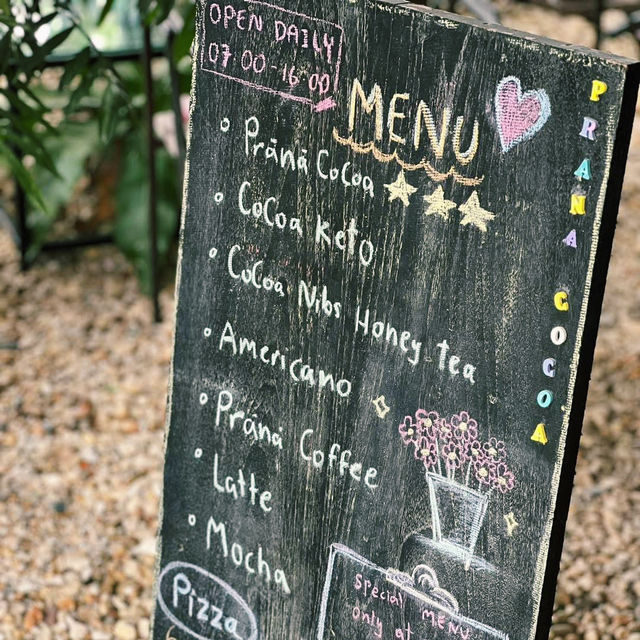 OPEN DAILY
07:00-16:00
MENU
Prānā CoCoa
CoCoa Keto
CoCoa Nibs Honey tea
Americano
Prānā Coffee
Latte
Mocha
Pizza
special MENU
only at
PRANA COCOA